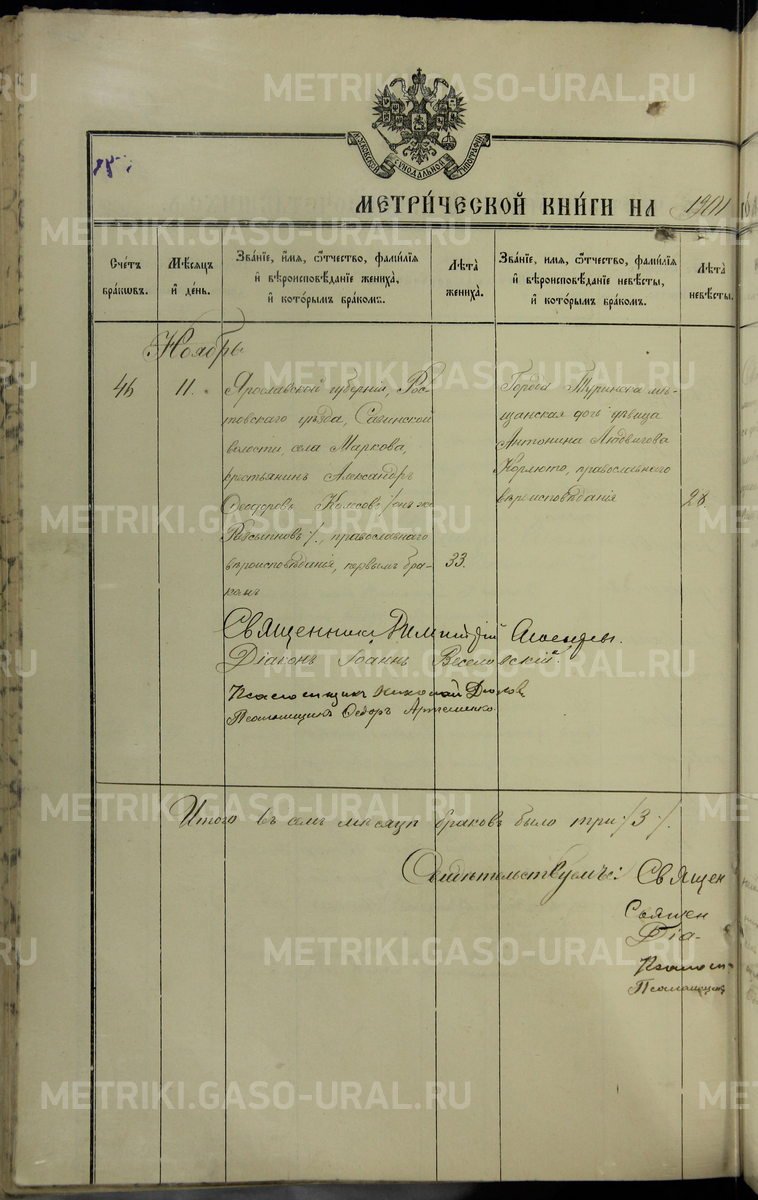 МОСКОВСКОЙ СѴНОДАЛЬНОЙ ТИПОГРАФІИ
МЕТРИ́ЧЕСКОЙ КНИ́ГИ НА 1901
Сче́тъ бра́кωвъ.
Мѣ́сяцъ и҆ де́нь.
Зва́нїе, и҆́мя, ѻ҆́тчество, фами́лїя и҆ вѣроисповѣ́данїе жениха́, и҆ кото́рымъ бра́комъ.
Лѣ́та жениха̀.
Зва́нїе, и҆́мя, ѻ҆́тчество, фами́лїя и҆ вѣроисповѣ́данїе невѣ́сты, и҆ кото́рымъ бра́комъ.
Лѣ́та невѣ́сты.
Ноябрь
46
11.
Ярославской губерніи, Рос-
товскаго уѣзда, Сагинской
волости, села Маркова,
крестьянинъ Александръ
Ѳеодоровъ Колесовъ /онъ же
Разсыпновъ/, православнаго
вѣроисповѣданія, первымъ бра-
комъ
33.
Города Туринска мѣ-
щанская дочь дѣвица
Антонина Людвигова
Корлюто, православнаго
вѣроисповѣданія
28.
Священникъ Димитрій
Діаконъ Іоаннъ Веселовскій.
Псаломщикъ Николай
Псаломщикъ Ѳедоръ Артеменко
Итого въ семъ мѣсяцѣ браковъ было три /3/.
Свидѣтельствуемъ: Священ
Священ
Діа-
Псалом-
Псаломщикъ
METRIKI.GASO-URAL.RU